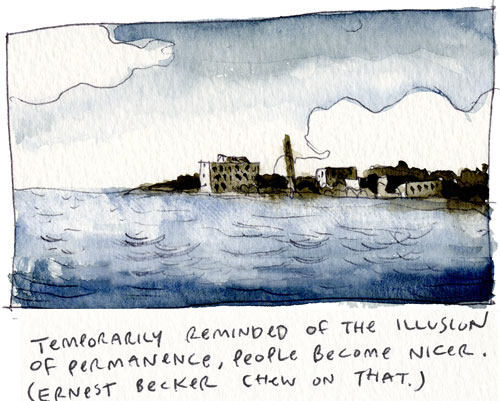 TEMPORARILY REMINDED OF THE ILLUSION
OF PERMANENCE, PEOPLE BECOME NICER.
(ERNEST BECKER CHEW ON THAT.)